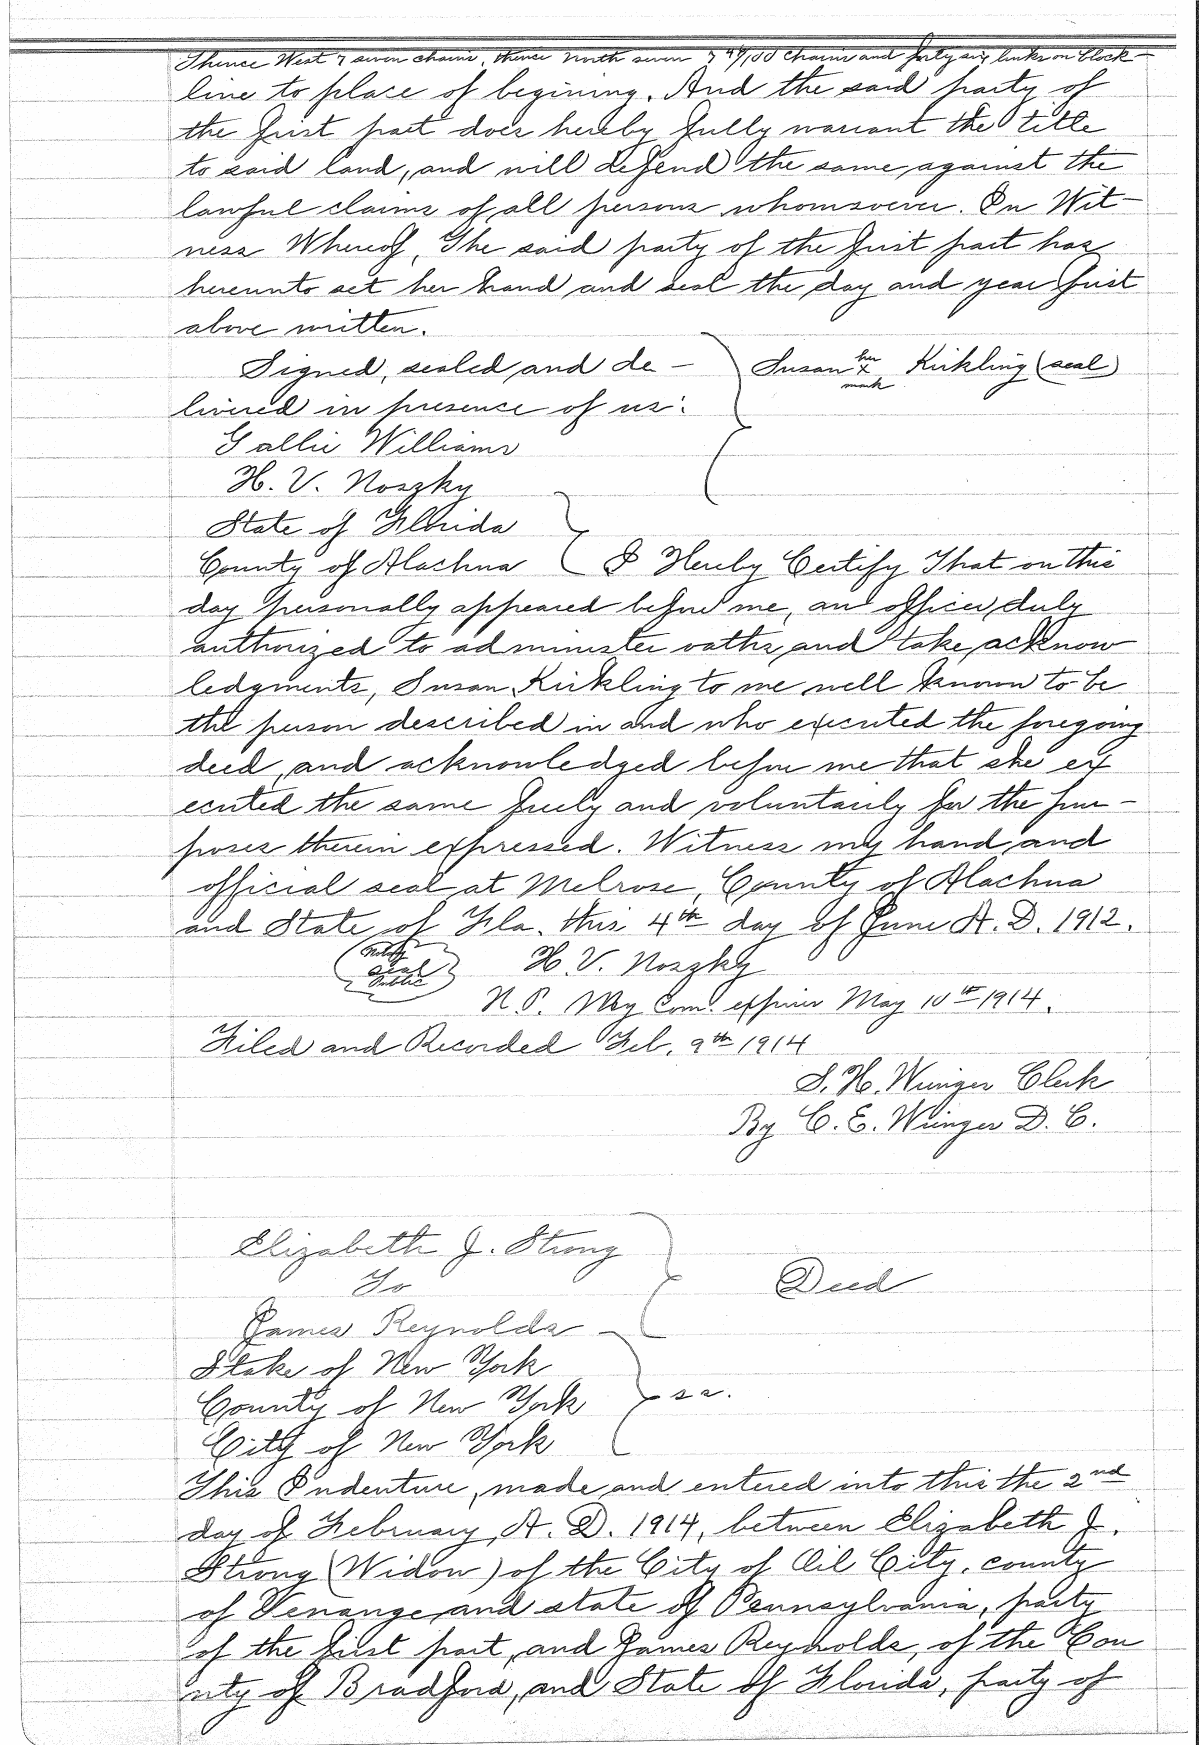 Thence West 7 seven chains, thence North seven 7 46/100 chains and forty six links on block
line to place of begining. And the said party of
the first part does hereby fully warrant the title
to said land, and will defend the same against the
lawful claims of all persons whomsoever. In Wit-
ness Whereof, The said party of the first part has
hereunto set her hand and seal the day and year first
above written.
Signed, sealed and de-
livered in presence of us:
Susan her x mark Kirkling (seal)
Gallie Williams
H. V. Noszky
State of Florida
County of Alachua I Hereby Certify That on this
day personally appeared before me, an officer duly
authorized to administer oaths and take acknow
ledgments, Susan Kirkling to me well known to be
the person described in and who executed the foregoing
deed, and acknowledged before me that she ex
ecuted the same freely and voluntarily for the pur-
poses therein expressed. Witness my hand and
official seal at Melrose, County of Alachua
and State of Fla. this 4th day of June A. D. 1912.
Notary
Seal
Public
H. V. Noszky
N. P. My Com. expires May 10th 1914.
Filed and Recorded Feb. 9th 1914
S. H. Wienges Clerk
By C. E. Wienges D. C.
Elizabeth J. Strong
To
James Reynolds
Deed
State of New York
County of New York ss.
City of New York
This Indenture, made and entered into this the 2nd
day of February, A. D. 1914, between Elizabeth J.
Strong (Widow) of the City of Oil City, county
of Venange and state of Pennsylvania, party
of the first part, and James Reynolds, of the Cou
nty of Bradford, and State of Florida, party of